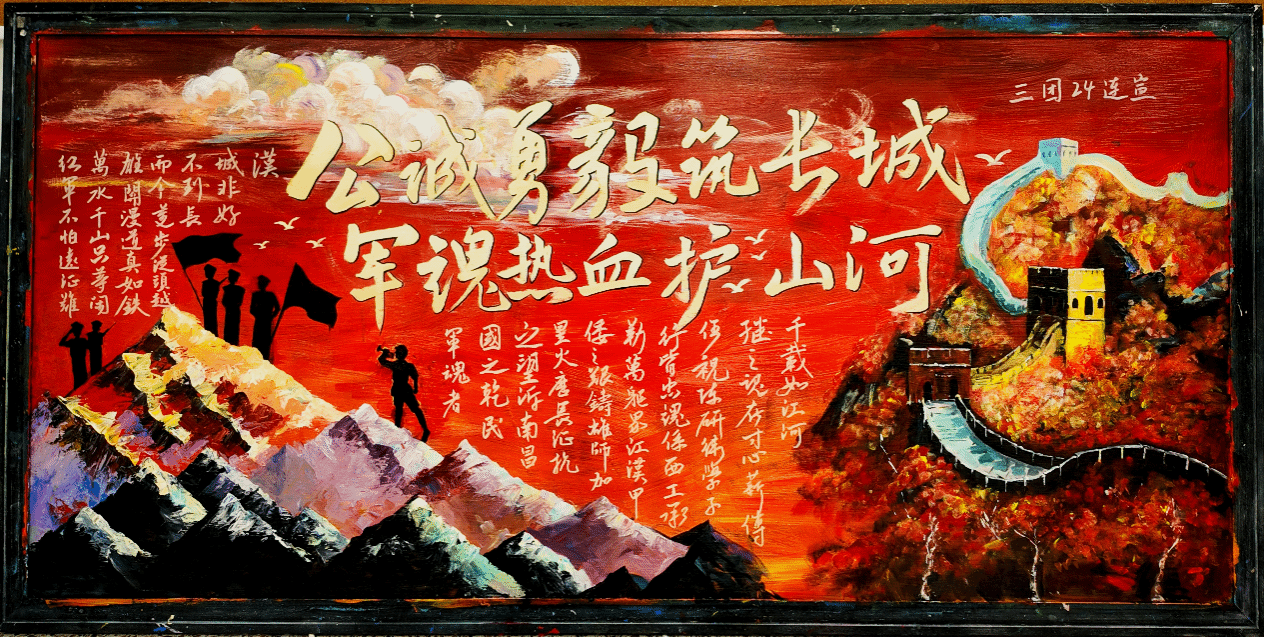 三团24连宣
公诚勇毅筑长城
军魂热血护山河
红軍不怕遠征難
萬水千山只等閒
雄關漫道真如鉄
而今邁步從頭越
不到長
城非好
漢
軍魂者
國之乾民
之望溯南昌
星火歷長征抗
倭之艱鑄雄師加
江漢甲
行皆忠魂係西工承
學子
繼之魂存寸心薪傳
千載如江河